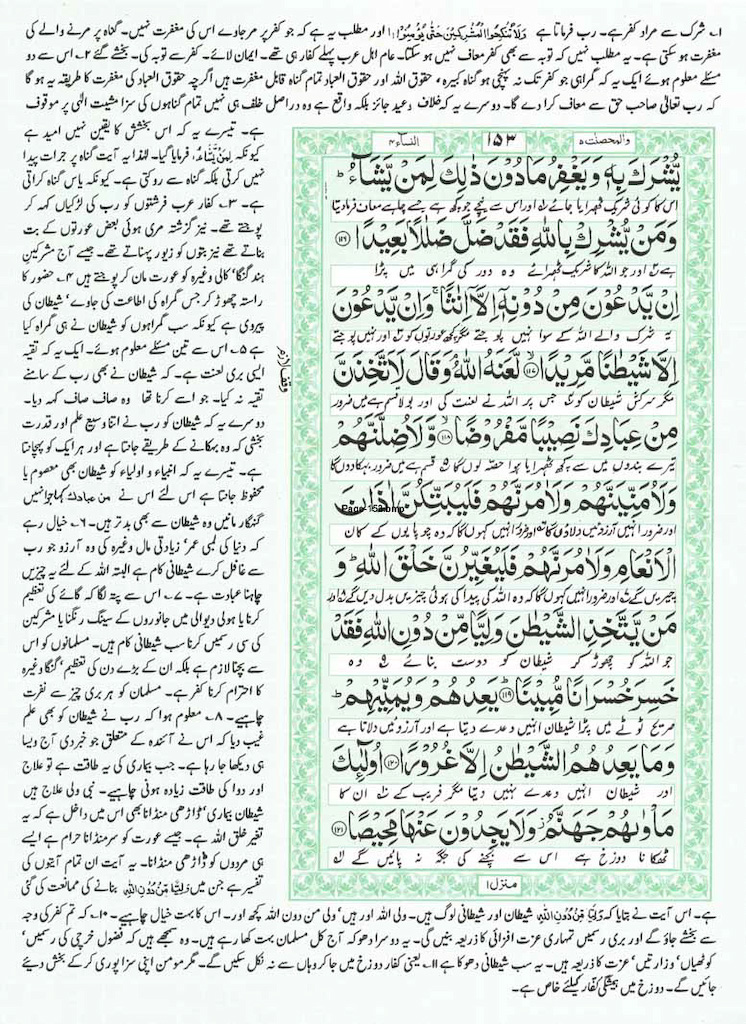 ۱۔ شرک سے مراد کفر ہے۔ رب فرماتا ہے وَلَا تَنْكِحُوا الْمُشْرِكِيْنَ حَتّٰى يُؤْمِنُوْا اور مطلب یہ ہے کہ جو کفر پر مر جاوے اس کی مغفرت نہیں۔ گناہ پر مرنے والے کی
مغفرت ہو سکتی ہے۔ یہ مطلب نہیں کہ توبہ سے بھی کفر معاف نہیں ہو سکتا۔ عام اہل عرب پہلے کفار ہی تھے۔ ایمان لائے۔ کفر سے توبہ کی۔ بخشے گئے ۲۔ اس سے دو
مسئلے معلوم ہوئے ایک یہ کہ گمراہی جو کفر تک نہ پہنچی ہو گناہ کبیرہ، حقوق اللہ اور حقوق العباد تمام گناہ قابل مغفرت ہیں اگرچہ حقوق العباد کی مغفرت کا طریقہ یہ ہو گا
کہ رب تعالٰی صاحب حق سے معاف کرا دے گا۔ دوسرے یہ کہ خلاف وعید جائز بلکہ واقع ہے وہ دراصل خلف ہی نہیں تمام گناہوں کی سزا مشیت الٰہی پر موقوف
ہے۔ تیسرے یہ کہ اس بخشش کا یقین نہیں امید ہے
کیونکہ لِمَنْ يَّشَآءُ فرمایا گیا۔ لہٰذا یہ آیت گناہ پر جرات پیدا
نہیں کرتی بلکہ گناہ سے روکتی ہے۔ کیونکہ یاس گناہ کراتی
ہے۔ ۳۔ کفار عرب فرشتوں کو رب کی لڑکیاں کہہ کر
پوجتے تھے۔ نیز گزشتہ مری ہوئی بعض عورتوں کے بت
بناتے تھے نیز بتوں کو زیور پہناتے تھے۔ جیسے آج مشرکین
ہند گنگا کالی وغیرہ کو عورت مان کر پوجتے ہیں ۴۔ حضور کا
راستہ چھوڑ کر جس گمراہ کی اطاعت کی جاوے، شیطان کی
پیروی ہے کیونکہ سب گمراہوں کو شیطان نے ہی گمراہ کیا
ہے ۵۔ اس سے تین مسئلے معلوم ہوئے۔ ایک یہ کہ تقیہ
ایسی بری لعنت ہے۔ کہ شیطان نے بھی رب کے سامنے
تقیہ نہ کیا۔ جو اسے کرنا تھا وہ صاف صاف کہہ دیا۔
دوسرے یہ کہ شیطان کو رب نے اتنا وسیع علم اور قدرت
بخشی کہ وہ بہکانے کے طریقے جانتا ہے اور ہر ایک کو پہچانتا
ہے۔ تیسرے یہ کہ انبیاء و اولیاء کو شیطان بھی معصوم یا
محفوظ جانتا ہے اس لئے اس نے من عبادک کہا جو انہیں
گنہگار مانیں وہ شیطان سے بھی بدتر ہیں۔ ۶۔ خیال رہے
کہ دنیا کی لمبی عمر، زیادتی مال وغیرہ کی وہ آرزو جو رب
سے غافل کرے شیطانی کام ہے البتہ اللہ کے لئے یہ چیزیں
چاہنا عبادت ہے۔ ۷۔ اس سے پتہ لگا کہ گائے کی تعظیم
کرنا یا ہولی دیوالی میں جانوروں کے سینگ رنگنا یا مشرکین
کی سی رسمیں کرنا سب شیطانی کام ہیں۔ مسلمانوں کو اس
سے بچنا لازم ہے بلکہ ان کے بڑے دن کی تعظیم، گنگا وغیرہ
کا احترام کرنا کفر ہے۔ مسلمان کو ہر بری چیز سے نفرت
چاہیے۔ ۸۔ معلوم ہوا کہ رب نے شیطان کو بھی علم
غیب دیا کہ اس نے آئندہ کے متعلق جو خبر دی آج ویسا
ہی دیکھا جا رہا ہے۔ جب بیماری کی یہ طاقت ہے تو علاج
اور دوا کی طاقت زیادہ ہونی چاہیے۔ نبی ولی علاج ہیں
شیطان بیماری، ڈاڑھی منڈانا بھی اس میں داخل ہے کہ یہ
تغیر خلق اللہ ہے۔ جیسے عورت کو سر منڈانا حرام ہے ایسے
ہی مردوں کو ڈاڑھی منڈانا۔ ۹۔ یہ آیت ان تمام آیتوں کی
تفسیر ہے جن میں وَلِيًّا مِّنْ دُوْنِ اللّٰهِ بنانے کی ممانعت کی گئی
والمحصنٰت ۵
۱۵۳
النساء ۴
يُّشْرَكَ بِهٖ وَيَغْفِرُ مَا دُوْنَ ذٰلِكَ لِمَنْ يَّشَآءُ ؕ
اس کا کوئی شریک ٹھہرایا جائے ۱ اور اس سے نیچے جو کچھ ہے جسے چاہے معاف فرما دیتا
وَمَنْ يُّشْرِكْ بِاللّٰهِ فَقَدْ ضَلَّ ضَلٰلًاۢ بَعِيْدًا ﴿۱۱۶﴾
ہے ۲ اور جو اللہ کا شریک ٹھہرائے وہ دور کی گمراہی میں پڑا
اِنْ يَّدْعُوْنَ مِنْ دُوْنِهٖۤ اِلَّاۤ اِنٰثًا ۚ وَاِنْ يَّدْعُوْنَ
یہ شرک والے اللہ کے سوا نہیں پوجتے مگر کچھ عورتوں کو ۳ اور نہیں پوجتے
اِلَّا شَيْطٰنًا مَّرِيْدًا ﴿۱۱۷﴾ لَّعَنَهُ اللّٰهُ ۘ وَقَالَ لَاَتَّخِذَنَّ
مگر سرکش شیطان کو ۴ جس پر اللہ نے لعنت کی اور بولا قسم ہے میں ضرور
وقف لازم
مِنْ عِبَادِكَ نَصِيْبًا مَّفْرُوْضًا ﴿۱۱۸﴾ وَّلَاُضِلَّنَّهُمْ
تیرے بندوں میں سے کچھ ٹھہرایا ہوا حصہ لوں گا ۵ قسم ہے میں ضرور بہکا دوں گا
وَلَاُمَنِّيَنَّهُمْ وَلَاٰمُرَنَّهُمْ فَلَيُبَتِّكُنَّ اٰذَانَ
Page-153.bmp
اور ضرور انہیں آرزوئیں دلاؤں گا ۶ اور ضرور انہیں کہوں گا کہ وہ چوپایوں کے کان
الْاَنْعَامِ وَلَاٰمُرَنَّهُمْ فَلَيُغَيِّرُنَّ خَلْقَ اللّٰهِ ؕ وَ
چیریں گے ۷ اور ضرور انہیں کہوں گا کہ وہ اللہ کی پیدا کی ہوئی چیزیں بدل دیں گے ۸ اور
مَنْ يَّتَّخِذِ الشَّيْطٰنَ وَلِيًّا مِّنْ دُوْنِ اللّٰهِ فَقَدْ
جو اللہ کو چھوڑ کر شیطان کو دوست بنائے ۹ وہ
خَسِرَ خُسْرَانًا مُّبِيْنًا ﴿۱۱۹﴾ يَعِدُهُمْ وَيُمَنِّيْهِمْ ؕ
صریح ٹوٹے میں پڑا شیطان انہیں وعدے دیتا ہے اور آرزوئیں دلاتا ہے
وَمَا يَعِدُهُمُ الشَّيْطٰنُ اِلَّا غُرُوْرًا ﴿۱۲۰﴾ اُولٰٓئِكَ
اور شیطان انہیں وعدے نہیں دیتا مگر فریب کے ۱۰ ان کا
مَاْوٰىهُمْ جَهَنَّمُ ۫ وَلَا يَجِدُوْنَ عَنْهَا مَحِيْصًا ﴿۱۲۱﴾
ٹھکانا دوزخ ہے اس سے بچنے کی جگہ نہ پائیں گے ۱۱
منزل ۱
ہے۔ اس آیت نے بتایا کہ وَلِيًّا مِّنْ دُوْنِ اللّٰهِ شیطان اور شیطانی لوگ ہیں۔ ولی اللہ اور ہیں، ولی من دون اللہ کچھ اور۔ اس کا بہت خیال چاہیے۔ ۱۰۔ کہ تم کفر کی وجہ
سے بخشے جاؤ گے اور بری رسمیں تمہاری عزت افزائی کا ذریعہ بنیں گی۔ یہ دوسرا دھوکہ آج کل مسلمان بہت کھا رہے ہیں۔ وہ سمجھے ہیں کہ فضول خرچی کی رسمیں،
کوٹھیاں، وزارتیں، عزت کا ذریعہ ہیں۔ یہ سب شیطانی دھوکا ہے ۱۱۔ یعنی کفار دوزخ میں جا کر وہاں سے نہ نکل سکیں گے۔ مگر مومن اپنی سزا پوری کر کے بخش دیئے
جائیں گے۔ دوزخ میں ہمیشگی کفار کیلئے خاص ہے۔